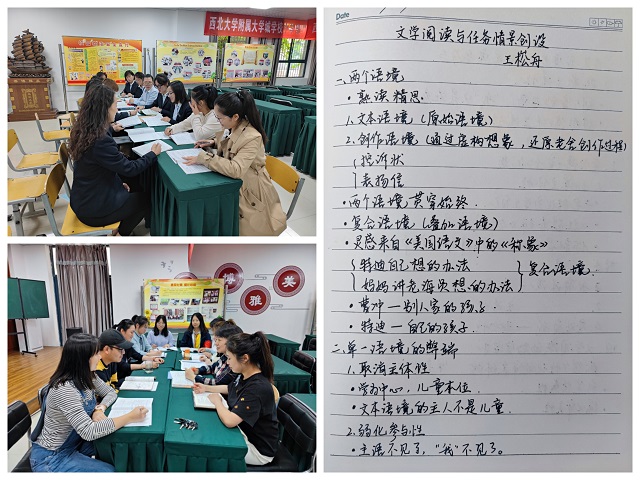 西北大学附属大学城学校
博
美
雅
Date
文学阅读与任务情景创设
王松舟
一、两个语境
·熟读精思.
1.文本语境（原始语境）
2.创作语境（通过虚构想象，还原老舍创作过程）
控诉状
表扬信
·两个语境贯穿始终.
·复合语境（叠加语境）
·灵感来自《美国语文》中的《称象》
特迪自己想的办法
妈妈讲老海员想的办法
复合语境.
·曹冲—别人家的孩子
·特迪—自己的孩子.
二、单一语境的弊端
1.取消主体性
·学习中心，儿童本位
·文本语境的主人不是儿童.
2.弱化参与性
·主语不见了，"我"不见了。